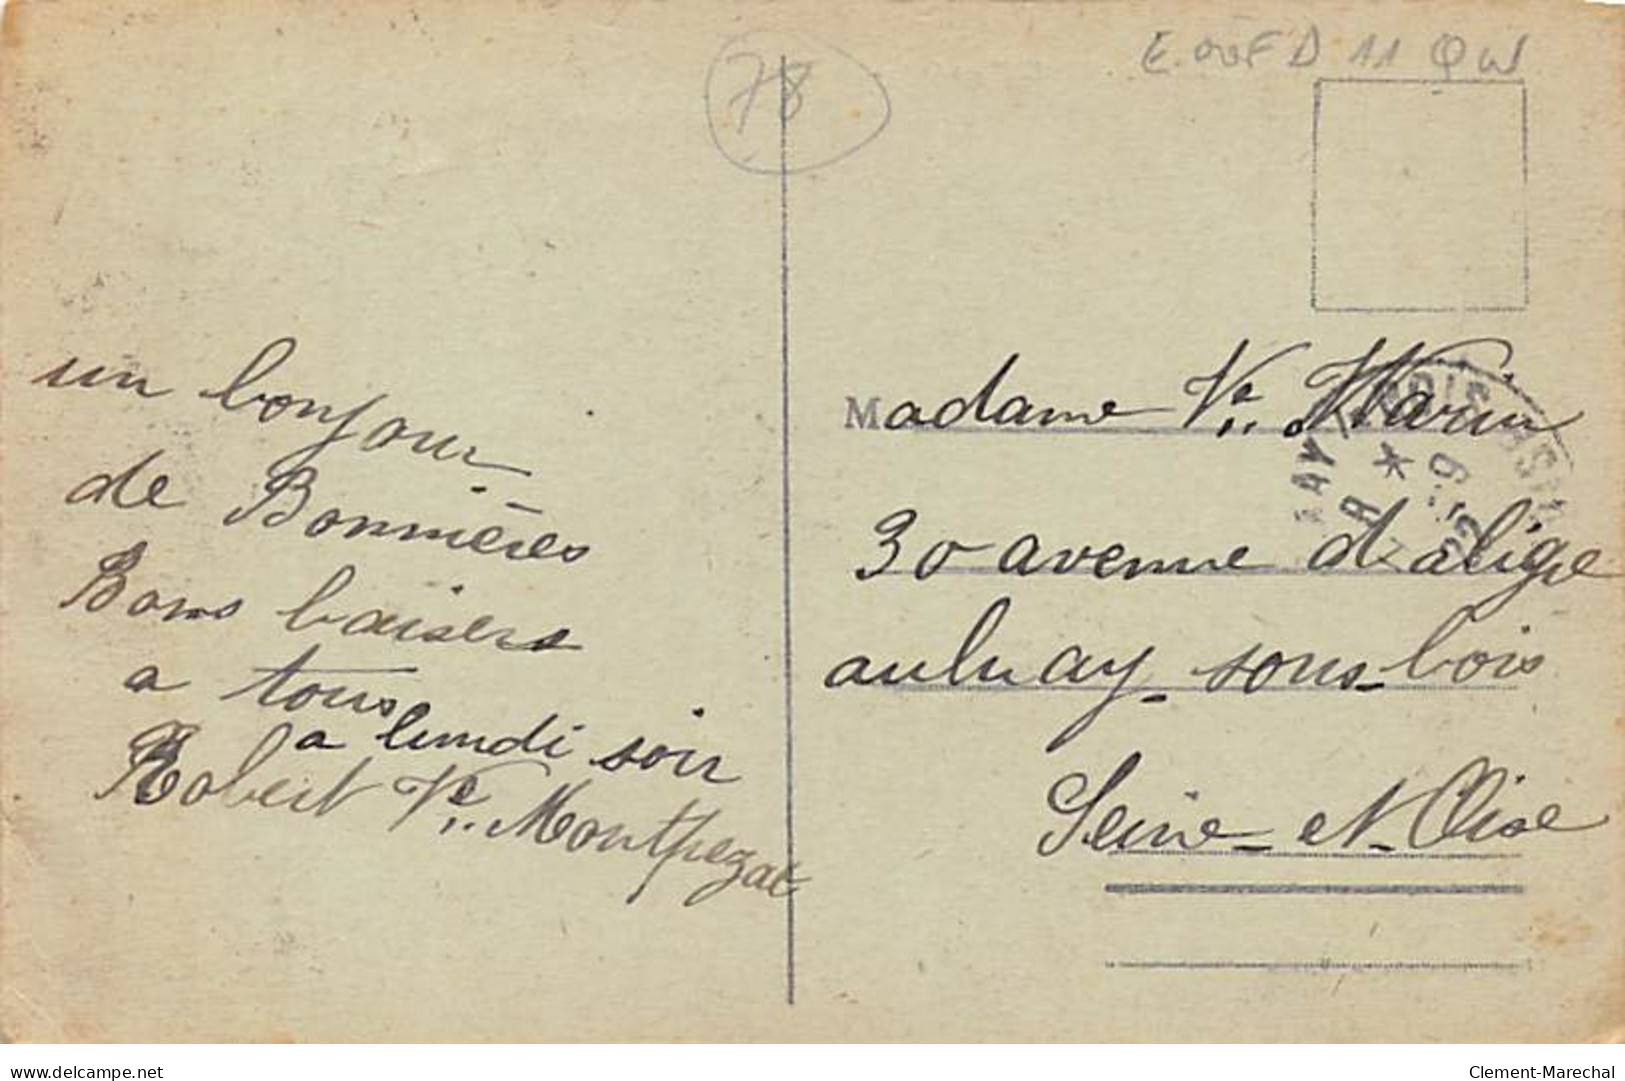 78
un bonjour
de Bonnières
Bons baisers
a tous
a lundi soir
Robert Vve Montpezat
Madame Vve
30 avenue d'aligre
aulnay-sous-bois
Seine-et-Oise
www.delcampe.net
Clement-Marechal